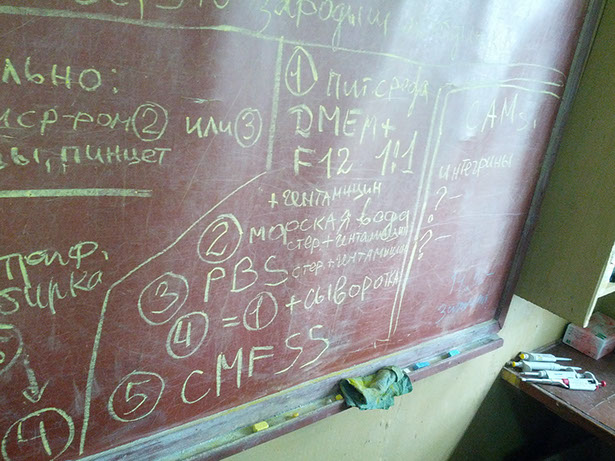 зародыш
льно:
р-ром ② или ③
ы, пинцет
①
пит среда
DMEM+
F12 1:1
+гентамицин
② морская вода
стер+гентамицин
③ PBS стер+гентамицин
④ = ① + сыворотка
⑤ CMFSS
CAMs,
интегрины
? -
? -
④